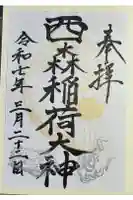 奉拝
西森稲荷大神
令和七年三月二十二日